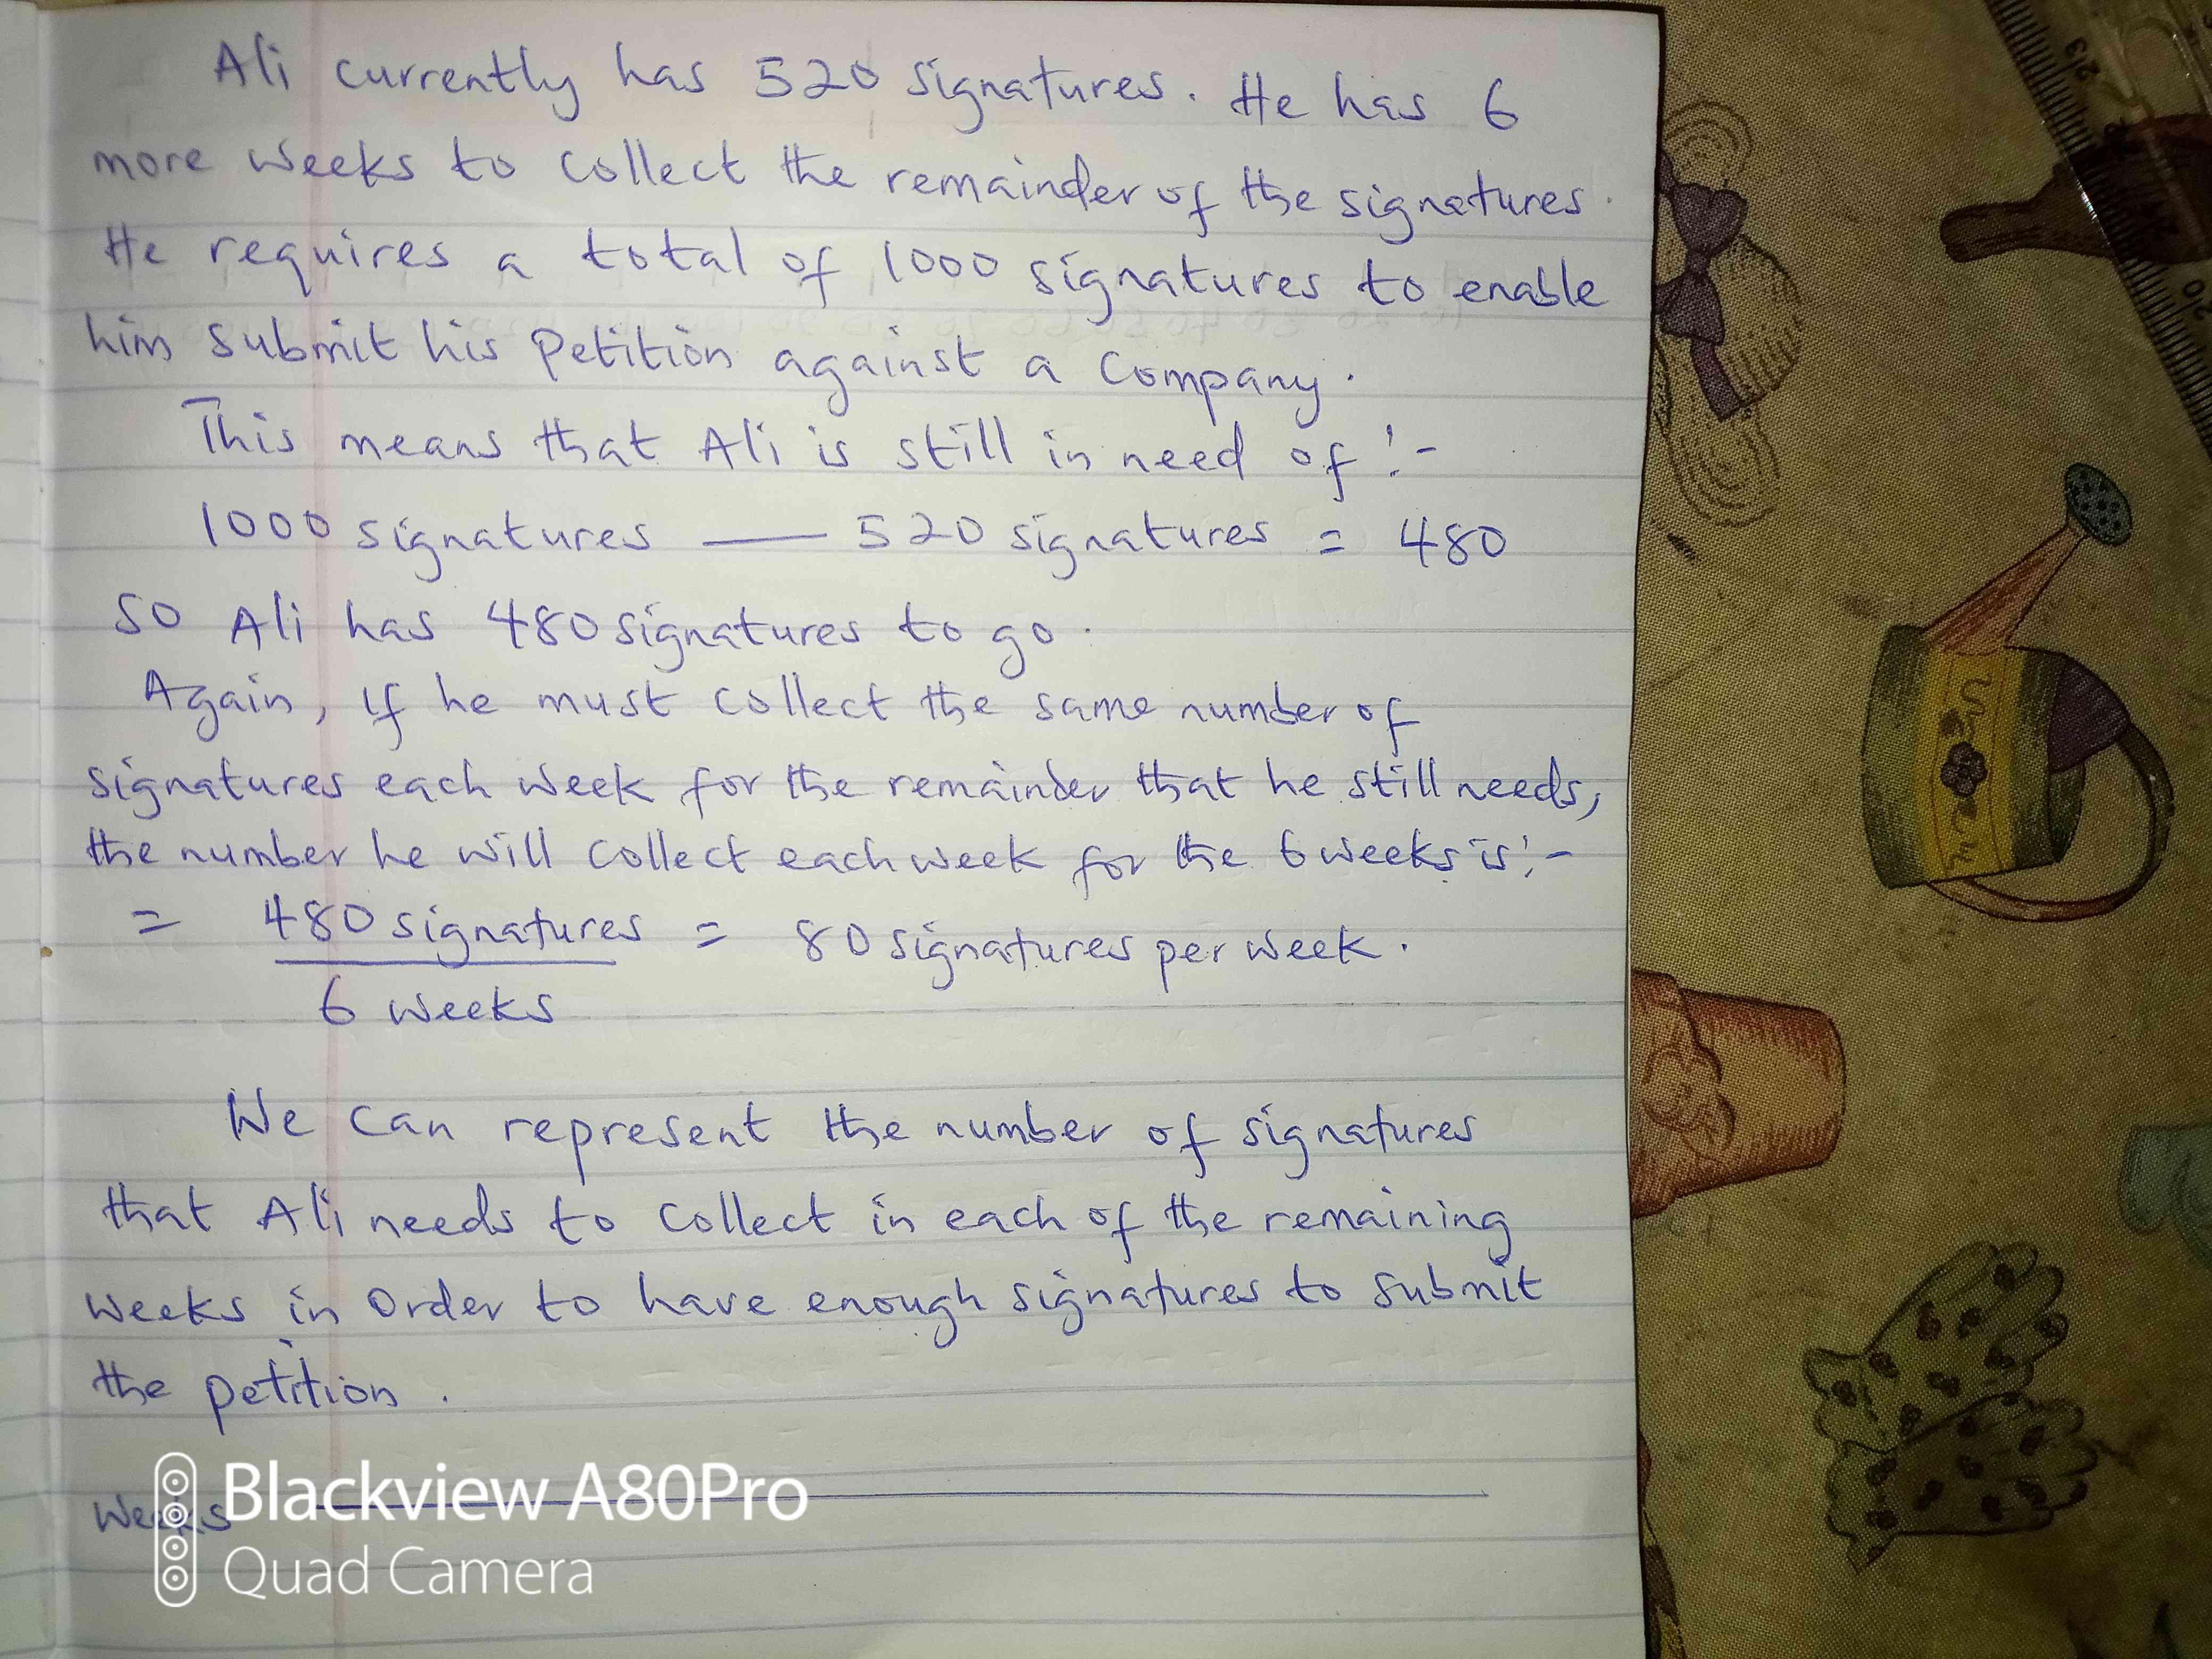 Ali currently has 520 signatures. He has 6
more weeks to collect the remainder of the signatures.
He requires a total of 1000 signatures to enable
him submit his petition against a company.
This means that Ali is still in need of :-
1000 signatures — 520 signatures = 480
So Ali has 480 signatures to go.
Again, if he must collect the same number of
signatures each week for the remainder that he still needs,
the number he will collect each week for the 6 weeks is :-
= 480 signatures = 80 signatures per week.
6 weeks
We can represent the number of signatures
that Ali needs to collect in each of the remaining
weeks in order to have enough signatures to submit
the petition.
Weeks
Blackview A80Pro
Quad Camera
23
20